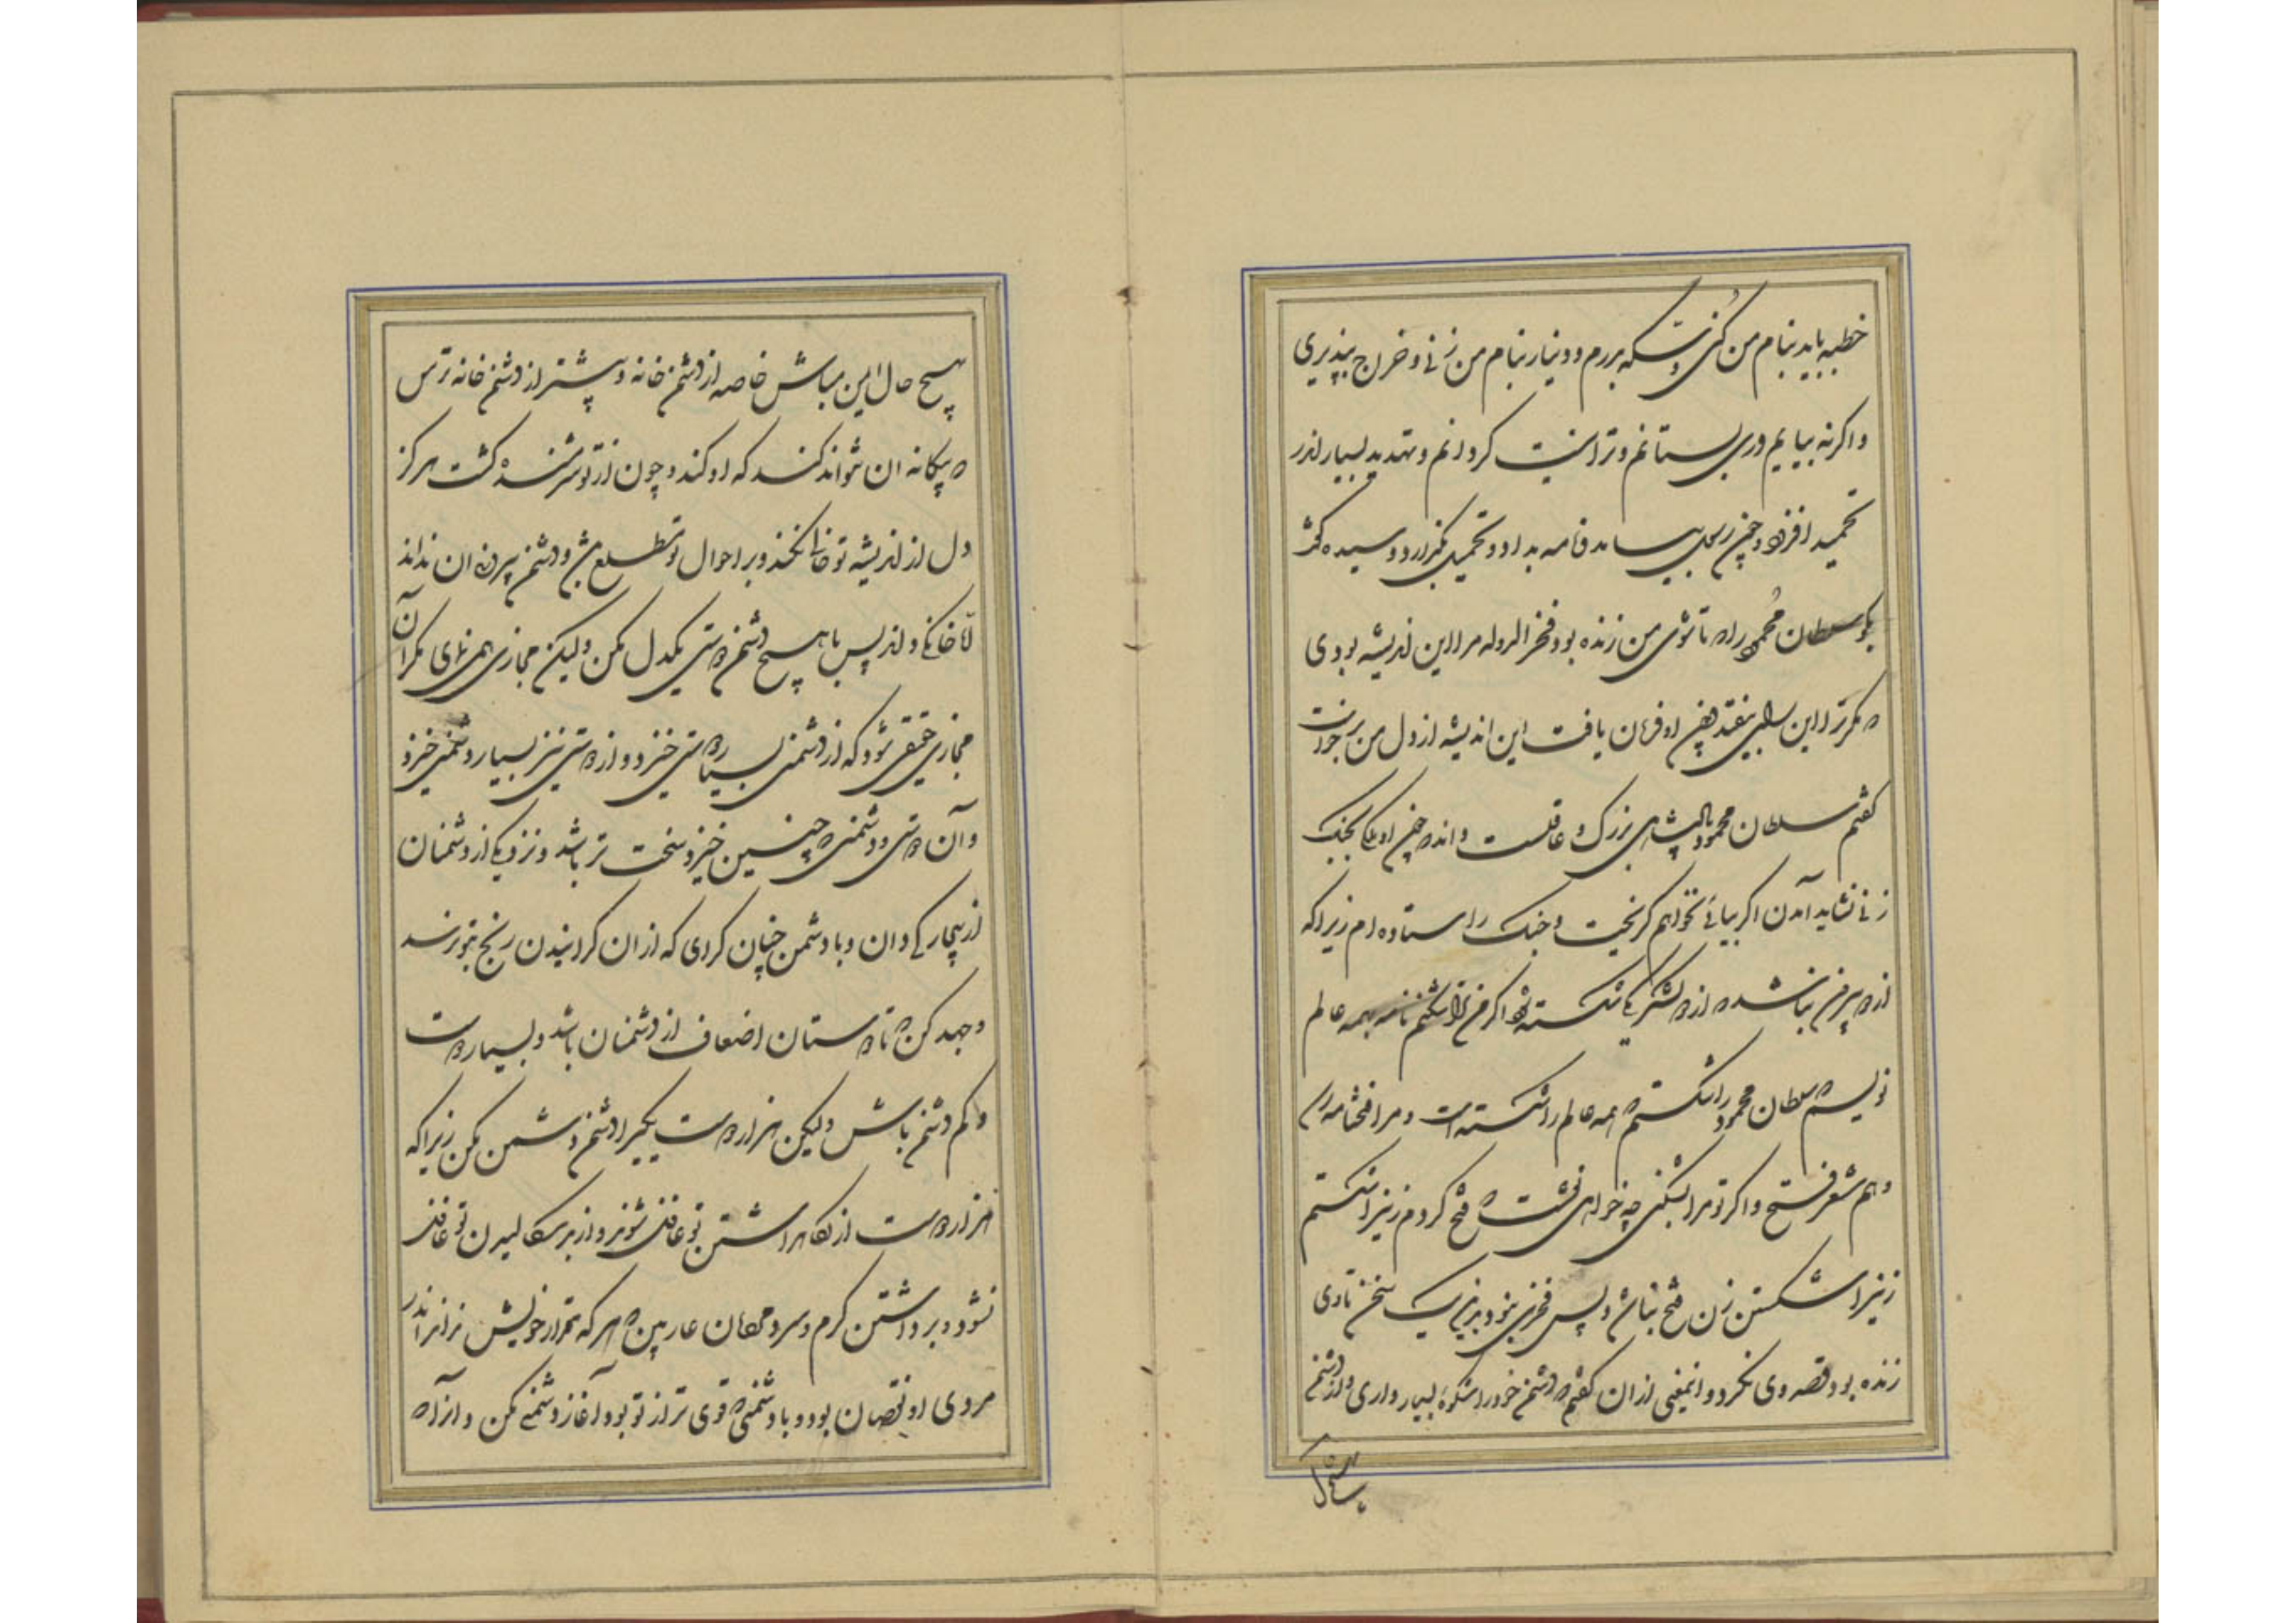 خطبه باید بنام من کنی و سکه بردرم و دینار بنام من زنی و خراج بپذیری
و اگر نه بیایم و ری بستانم و ترا نیست گردانم و تهدید بسیار اندر
تحمید افزود و چون رسول بیامد و نامه بداد و تحمید بگزارد و سیده گفت
بگو سلطان محمود را که تا شوی من زنده بود فخرالدوله مرا این اندیشه بودی
که مگر ترا این رای بیفتد چون او فرمان یافت این اندیشه از دل من برخواست
گفتم سلطان محمود پادشاهی بزرگ و عاقلست داند که چون او ملکی بجنگ
زنی نشاید آمدن اگر بیائی نخواهم گریخت و جنگ را ایستاده ام زیرا که
از دو بیرون نباشد که از دو لشکر یکی شکسته شود اگر من ترا بشکنم نامه بهمه عالم
نویسم که سلطان محمود را شکستم که همه عالم را شکسته است و مرا فتحنامه رسد
و هم شعر فتح و اگر تو مرا بشکنی چه خواهی نوشت که فتح کردم زنیرا شکستم
زنیرا شکستن زن فتح نباشد و بس فخری نبود بدین یک سخن تا وی
زنده بود قصد وی نکرد و اینمعنی از آن گفتم که دشمن خود را شکوه بسیار داری و از دشمن
بهیچ حال
بهیچ حال ایمن مباش خاصه از دشمن خانه و بیشتر از دشمن خانه ترس
که بیگانه آن نتواند کند که او کند و چون از تو ترسنده گشت هرگز
دل از اندیشه تو خالی نکند و بر احوال تو مطلع باشد و دشمن بیرون آن نداند
که خانگی و اندر پس با هیچ دشمن دوستی یکدل مکن ولیکن مجازی همی نمای مگر آن
مجازی حقیقی شود که از دشمنی بسیار دوستی خیزد و از دوستی نیز بسیار دشمنی خیزد
و آن دوستی و دشمنی که چنین خیزد سخت تر باشد و نزدیکی از دشمنان
از بیچارگی دان و با دشمن چنان گرای که از آن گرائیدن رنج بتو نرسد
و جهد کن که تا دوستان اضعاف از دشمنان باشد و بسیار دوست
و کم دشمن باش ولیکن هزار دوست یکیرا دشمن دشمن مکن زیرا که
هزار دوست از نگاهداشتن تو غافل شوند و از بدسگالیدن تو غافل
نشود و برداشتن گرم و سرد مردمان عار مبین که هر که مقدار خویش نداند اندر
مردمی او نقصان بود و با دشمنی که قوی تر از تو بود آغاز دشمنی مکن و از آنکه